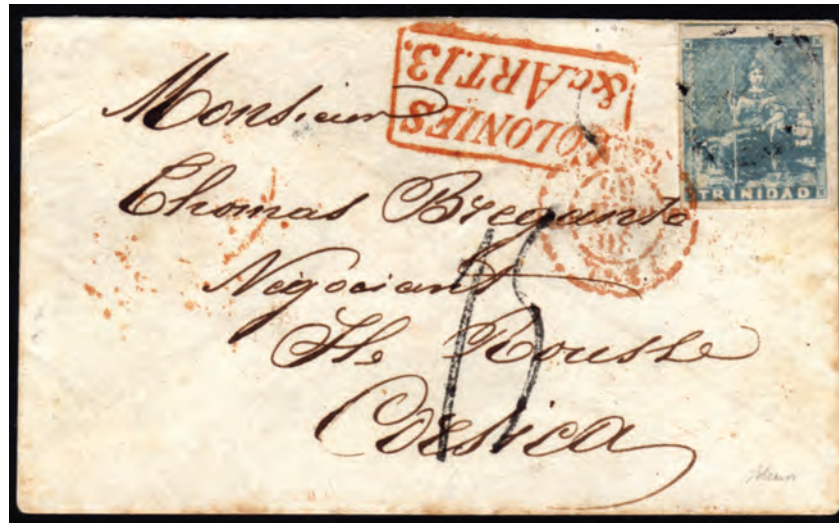 COLONIES
&cART.13.
TRINIDAD
Monsieur
Thomas Bregante
Négociant
Ile Rousse
Corsica
15